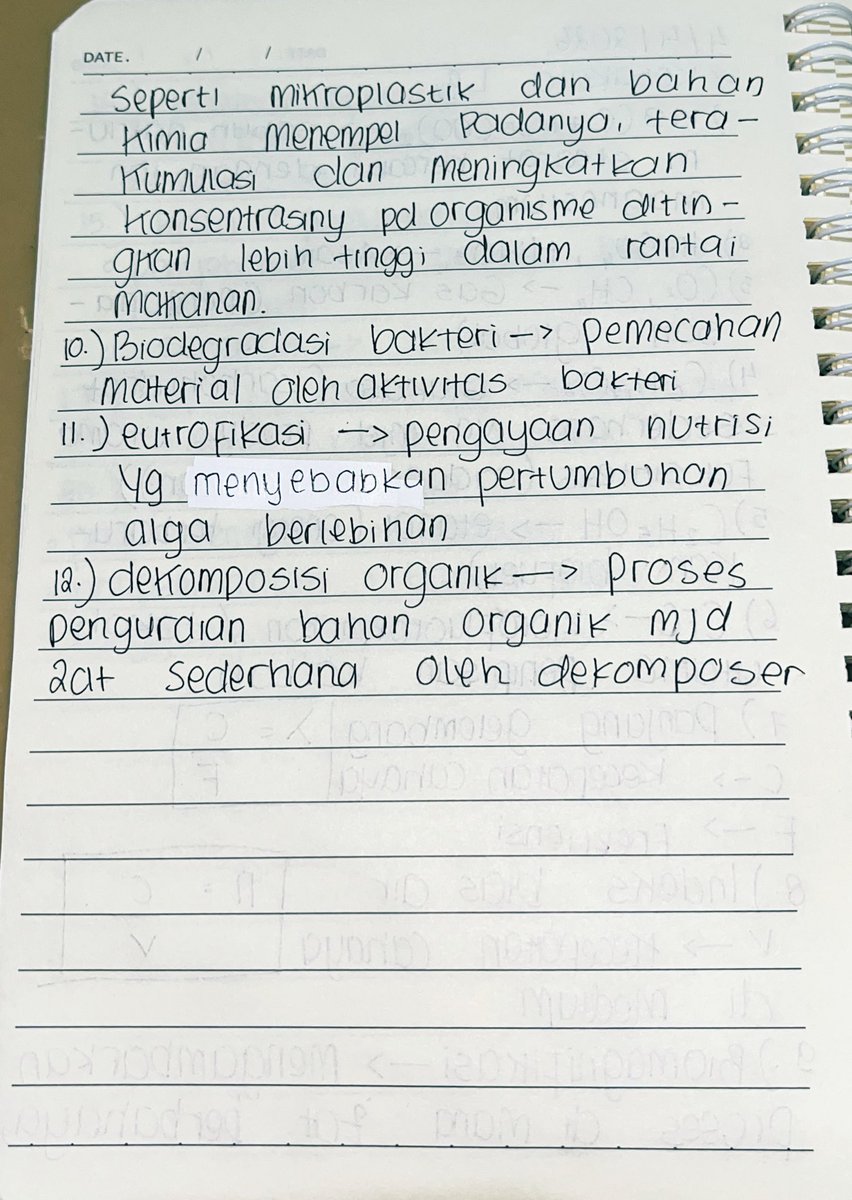 DATE. / /
seperti mikroplastik dan bahan
kimia menempel padanya, tera-
kumulasi dan meningkatkan
konsentrasiny pd organisme ditin-
gkan lebih tinggi dalam rantai
makanan.
10.) Biodegradasi bakteri -> pemecahan
material oleh aktivitas bakteri
11.) eutrofikasi -> pengayaan nutrisi
yg menyebabkan pertumbuhan
alga berlebihan
12.) dekomposisi organik -> proses
penguraian bahan organik mjd
zat sederhana oleh dekomposer